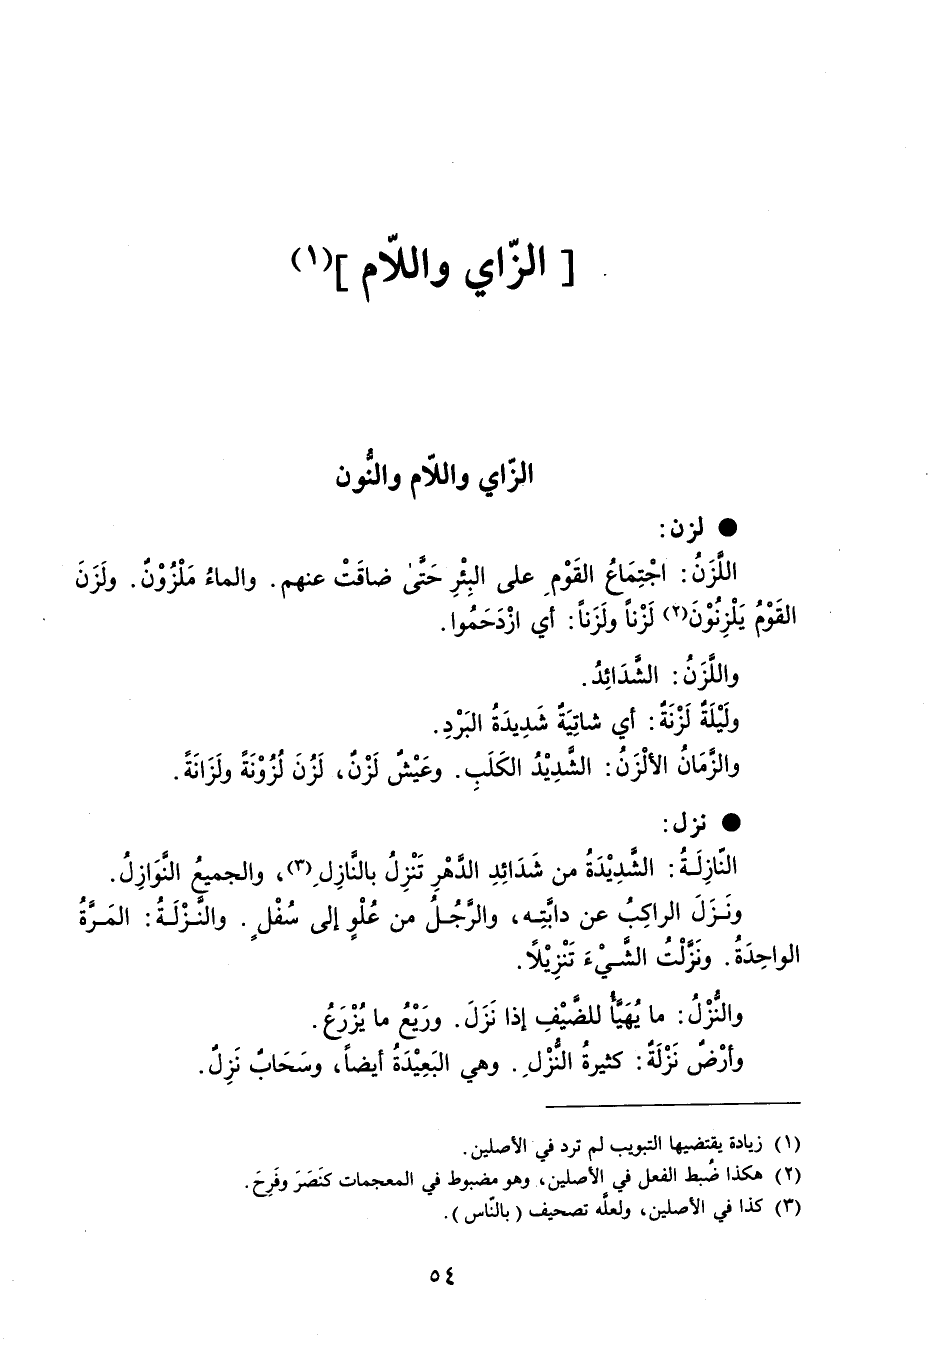 [ الزّاي واللّام ](١)
الزّاي واللّام والنُّون
● لزن:
اللَّزَنُ: اجْتِمَاعُ القَوْمِ على البِئْرِ حَتَّىٰ ضاقَتْ عنهم. والماءُ مَلْزُوْنٌ. ولَزَنَ
القَوْمُ يَلْزِنُوْنَ(٢) لَزْناً ولَزَناً: أي ازْدَحَمُوا.
واللَّزَنُ: الشَّدَائِدُ.
ولَيْلَةٌ لَزْنَةٌ: أي شاتِيَةٌ شَدِيدَةُ البَرْدِ.
والزَّمَانُ الألْزَنُ: الشَّدِيْدُ الكَلَبِ. وعَيْشٌ لَزْنٌ، لَزُنَ لُزُوْنَةً ولَزَانَةً.
● نزل:
النّازِلَةُ: الشَّدِيْدَةُ من شَدَائِدِ الدَّهْرِ تَنْزِلُ بالنَّازِلِ(٣)، والجميعُ النَّوَازِلُ.
ونَزَلَ الراكِبُ عن دابَّتِه، والرَّجُلُ من عُلْوٍ إلى سُفْلٍ. والنَّزْلَةُ: المَرَّةُ
الواحِدَةُ. ونَزَّلْتُ الشَّيْءَ تَنْزِيْلاً.
والنُّزْلُ: ما يُهَيَّأُ للضَّيْفِ إذا نَزَلَ. ورَيْعُ ما يُزْرَعُ.
وأرْضٌ نَزْلَةٌ: كثيرةُ النُّزْلِ. وهي البَعِيْدَةُ أيضاً، وسَحَابٌ نَزِلٌ.
(١) زيادة يقتضيها التبويب لم ترد في الأصلين.
(٢) هكذا ضُبط الفعل في الأصلين، وهو مضبوط في المعجمات كنَصَرَ وفَرِحَ.
(٣) كذا في الأصلين، ولعلَّه تصحيف ( بالنّاس ).
٥٤